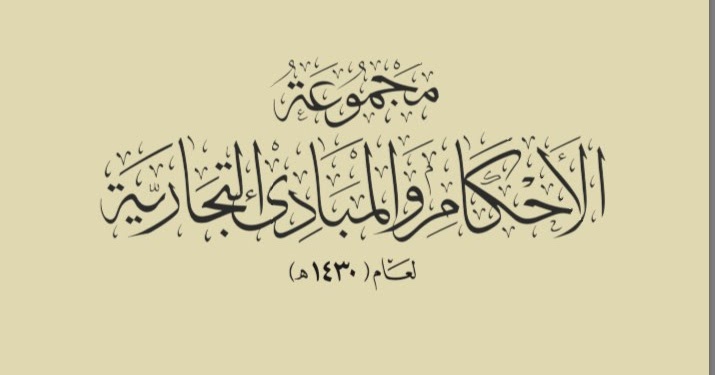 مجموعة
الأحكام والمبادئ التجارية
لعام (١٤٣٠هـ)